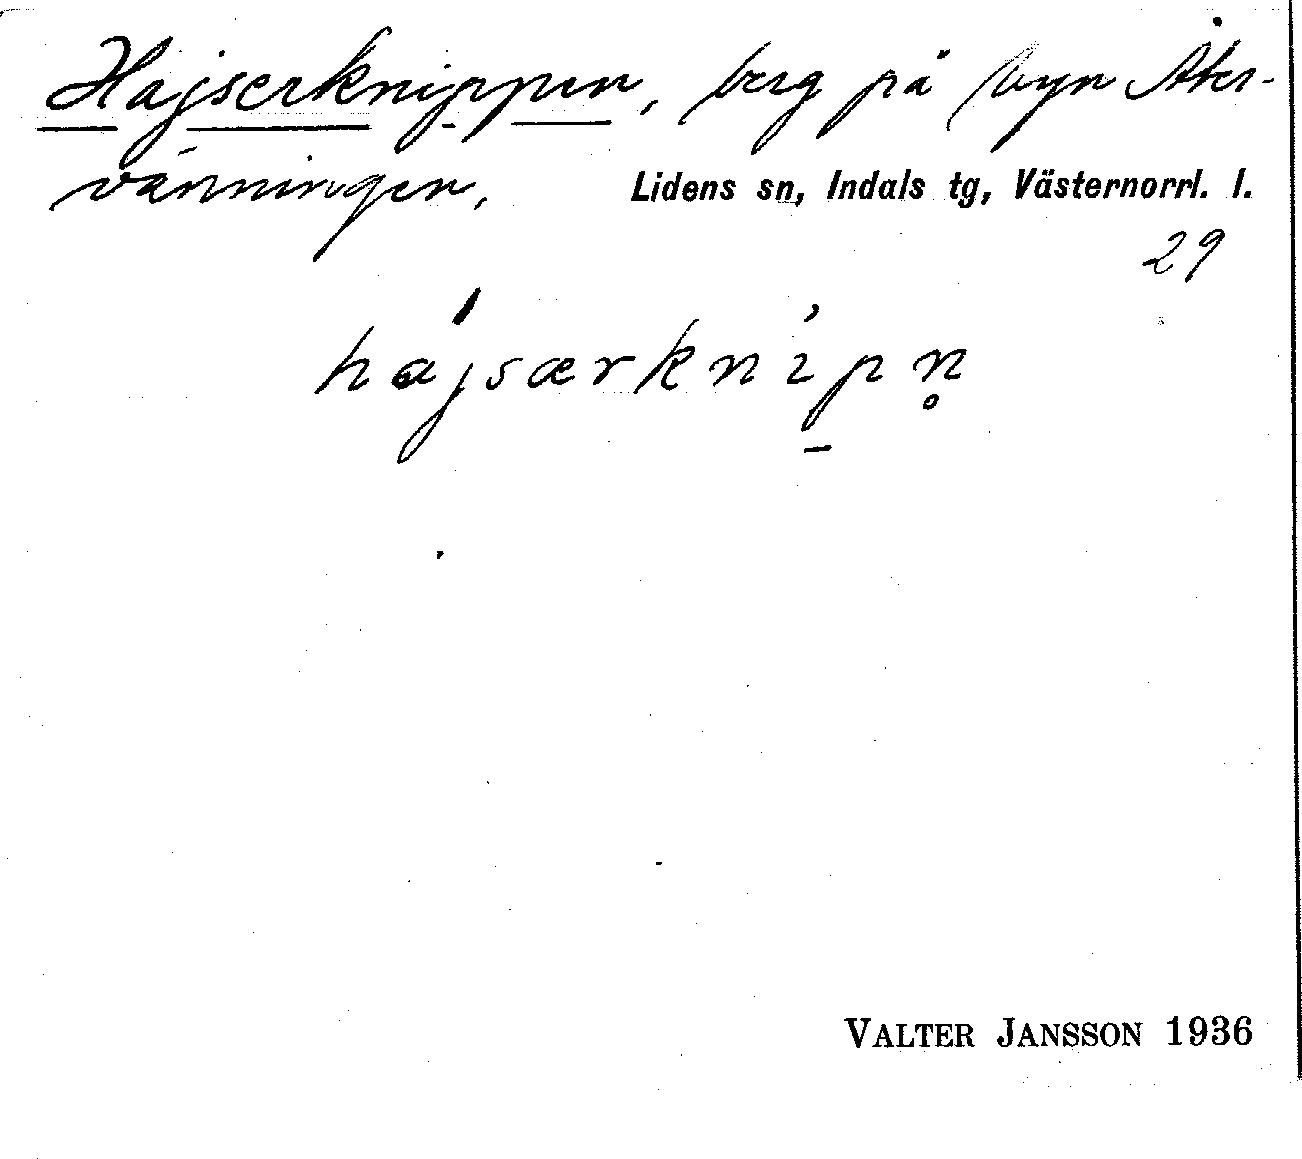 Hajserknippen, berg på byn Åter-
vänningen, Lidens sn, Indals tg, Västernorrl. l.
29
hajsærknip̠n̥
VALTER JANSSON 1936